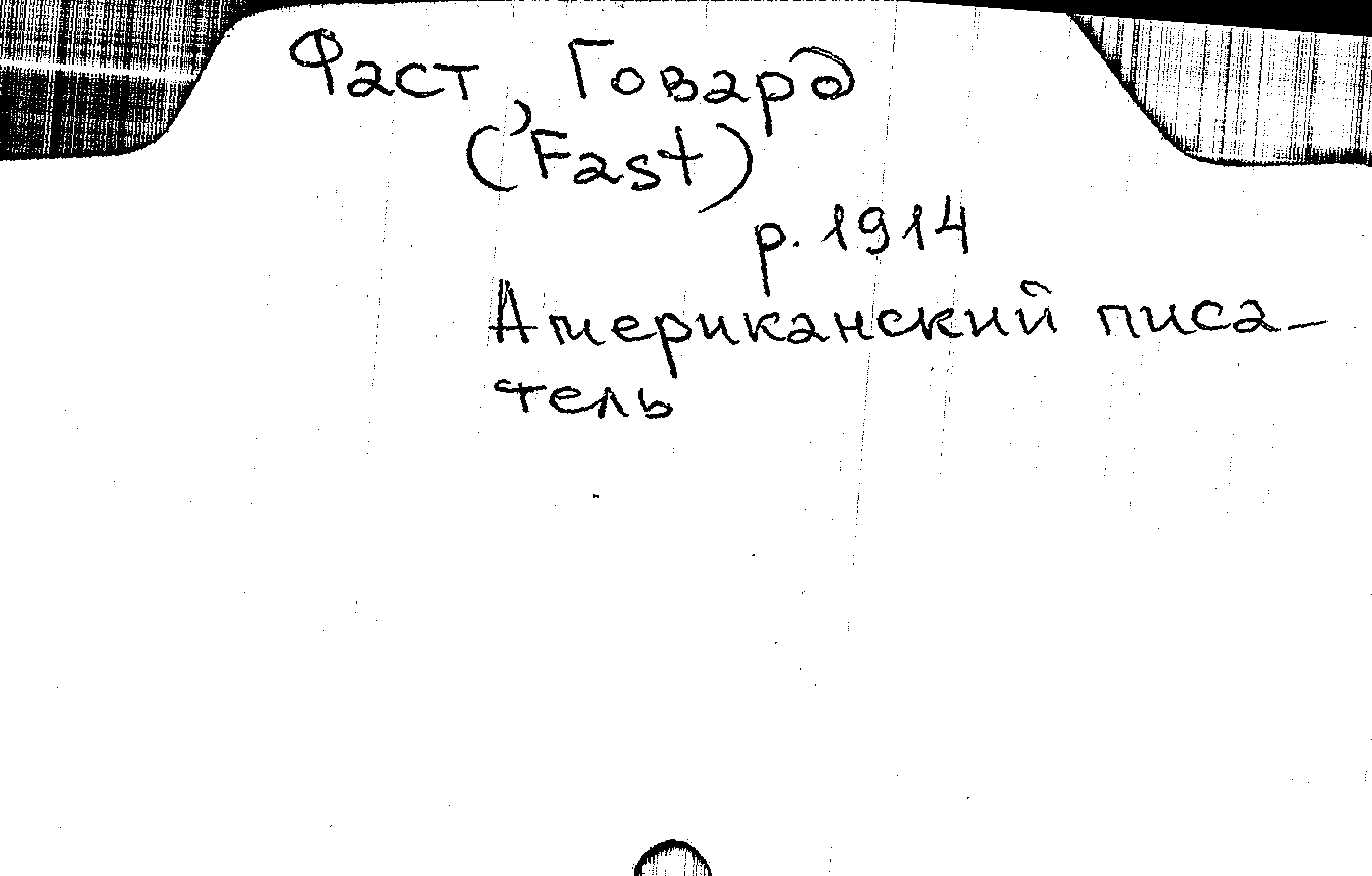 Фаст, Говард
(Fast)
р. 1914
Американский писа-
тель